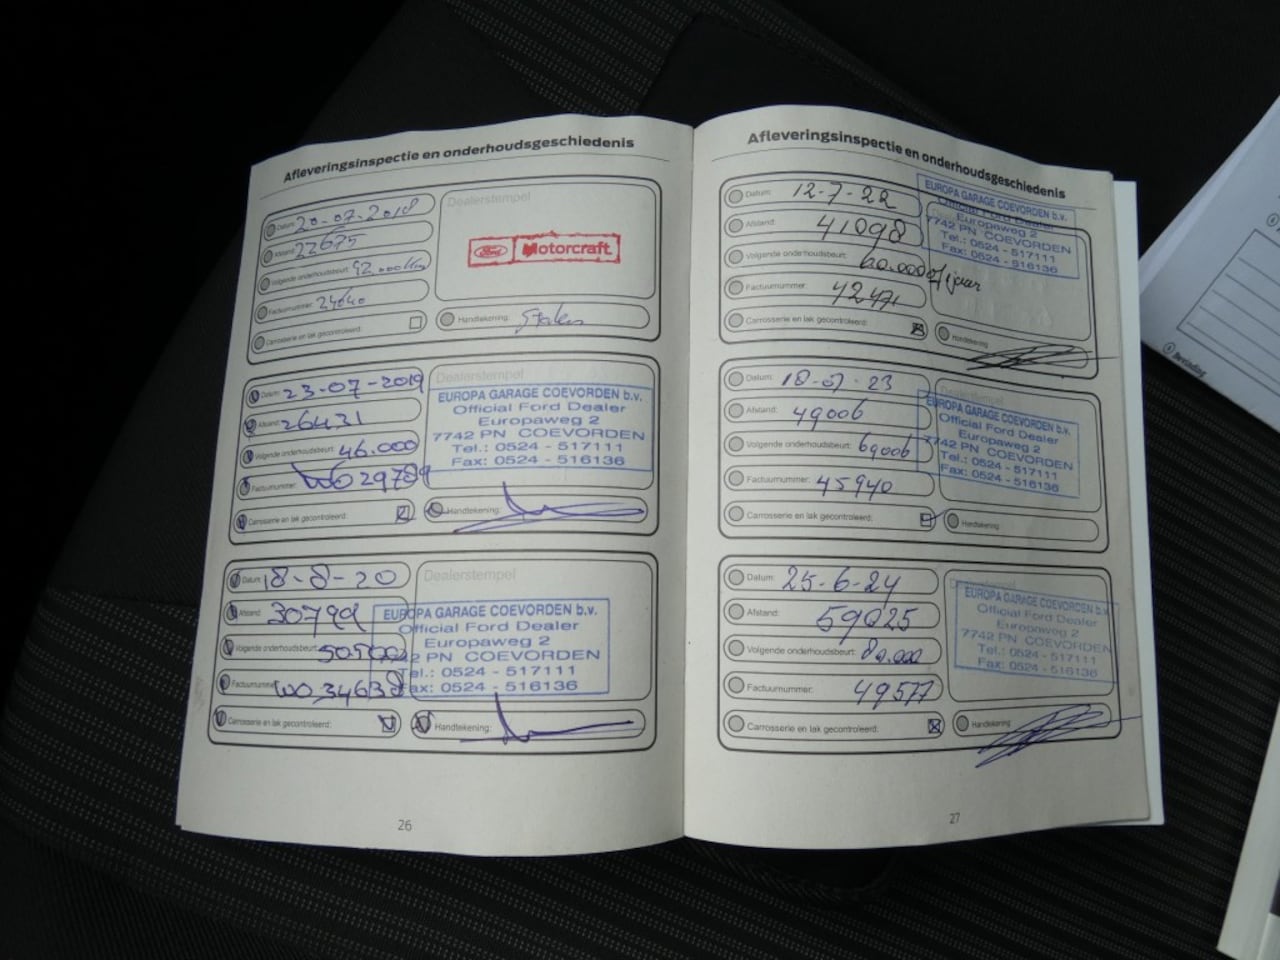 Afleveringsinspectie en onderhoudsgeschiedenis
Datum: 20-07-2018
Afstand: 22675
Volgende onderhoudsbeurt: 42.000km
Factuurnummer: 24640
Carrosserie en lak gecontroleerd:
Dealerstempel
Ford Motorcraft
Handtekening:
Datum: 23-07-2019
Afstand: 26431
Volgende onderhoudsbeurt: 46.000
Factuurnummer: WO29789
Carrosserie en lak gecontroleerd:
Dealerstempel
EUROPA GARAGE COEVORDEN b.v.
Official Ford Dealer
Europaweg 2
7742 PN COEVORDEN
Tel.: 0524 - 517111
Fax: 0524 - 516136
Handtekening:
Datum: 18-8-20
Afstand: 30799
Volgende onderhoudsbeurt: 50500
Factuurnummer: WO34638
Carrosserie en lak gecontroleerd:
Dealerstempel
EUROPA GARAGE COEVORDEN b.v.
Official Ford Dealer
Europaweg 2
7742 PN COEVORDEN
Tel.: 0524 - 517111
Fax: 0524 - 516136
Handtekening:
26
Afleveringsinspectie en onderhoudsgeschiedenis
Datum: 12-7-22
Afstand: 41098
Volgende onderhoudsbeurt: 60.000 of 1 jaar
Factuurnummer: 42471
Carrosserie en lak gecontroleerd:
EUROPA GARAGE COEVORDEN b.v.
Official Ford Dealer
Europaweg 2
7742 PN COEVORDEN
Tel.: 0524 - 517111
Fax: 0524 - 516136
Handtekening
Datum: 18-07-23
Afstand: 49006
Volgende onderhoudsbeurt: 69006
Factuurnummer: 45940
Carrosserie en lak gecontroleerd:
Dealerstempel
EUROPA GARAGE COEVORDEN b.v.
Official Ford Dealer
Europaweg 2
7742 PN COEVORDEN
Tel.: 0524 - 517111
Fax: 0524 - 516136
Handtekening
Datum: 25-6-24
Afstand: 59025
Volgende onderhoudsbeurt: 80.000
Factuurnummer: 49577
Carrosserie en lak gecontroleerd:
Dealerstempel
EUROPA GARAGE COEVORDEN b.v.
Official Ford Dealer
Europaweg 2
7742 PN COEVORDEN
Tel.: 0524 - 517111
Fax: 0524 - 516136
Handtekening
27
Bevinding